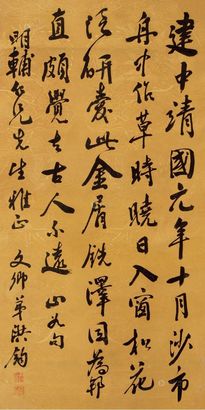 建中清國元年十月沙市
舟中作草時曉日入窗松花
研愛此金屑銑澤因為郭
直頗覺去古人不遠 山谷句
明輔仁兄先生雅正 文卿弟洪鈞